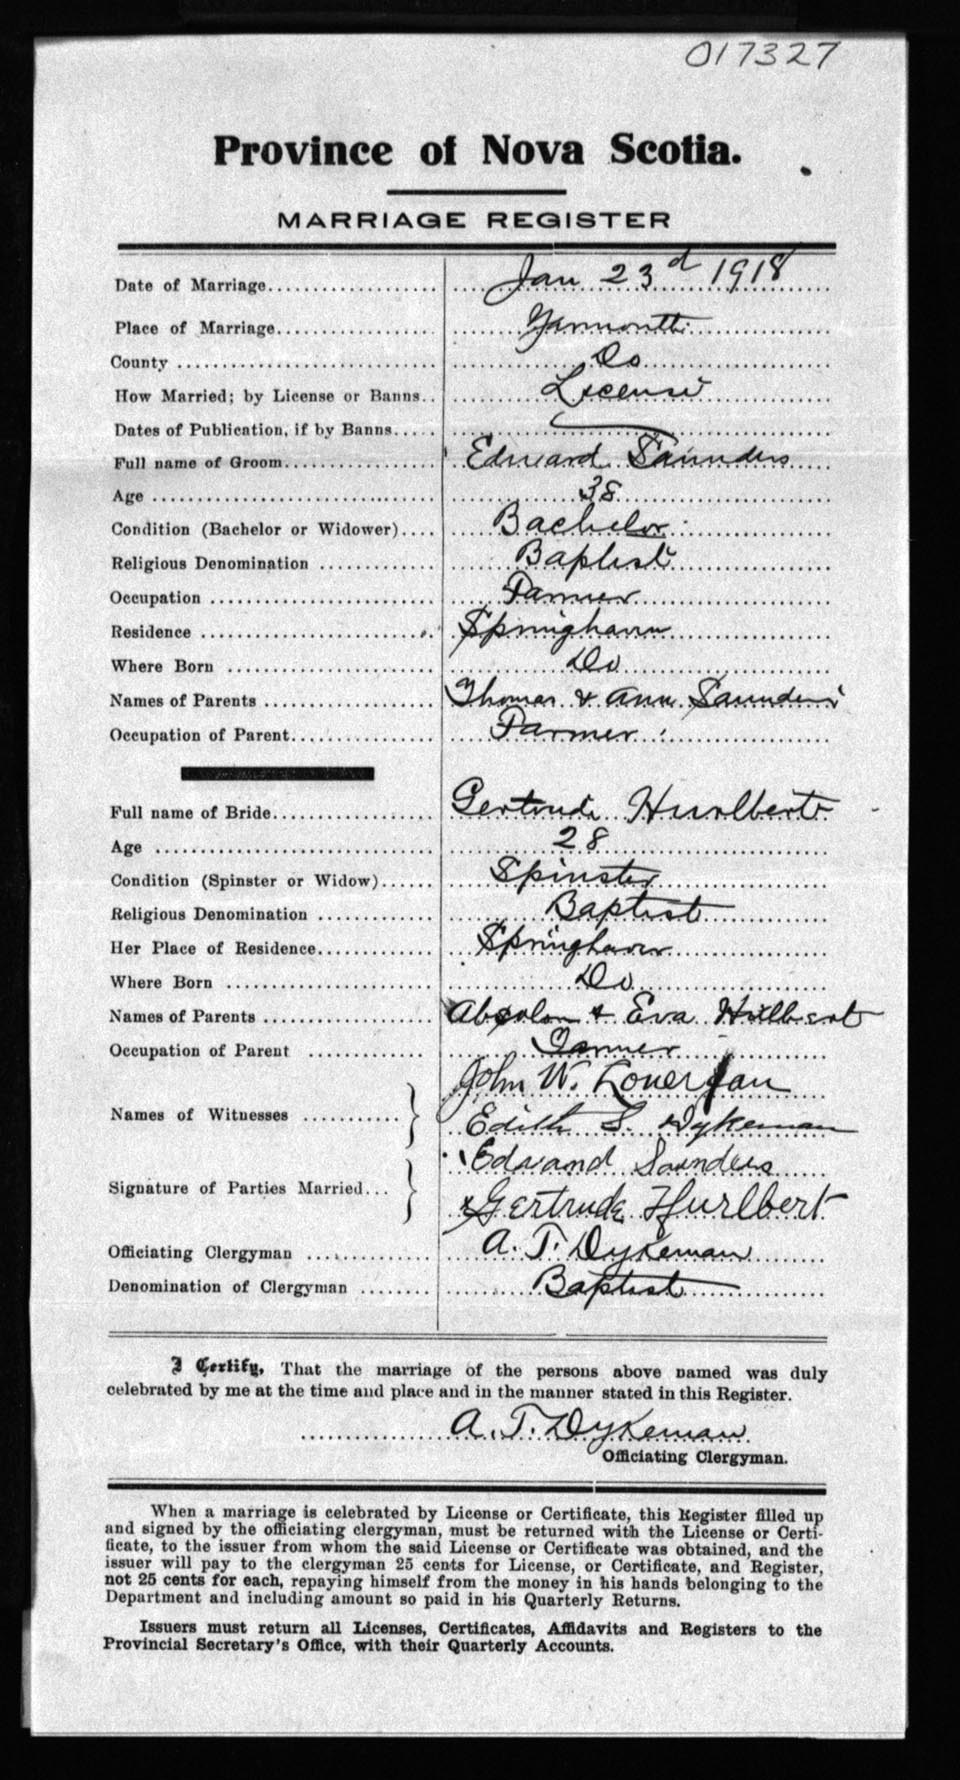 017327
Province of Nova Scotia.
MARRIAGE REGISTER
Date of Marriage................... Jan 23d 1918
Place of Marriage................... Yarmouth
County ............................. Do
How Married; by License or Banns.. License
Dates of Publication, if by Banns.....
Full name of Groom................. Edward Saunders
Age ................................ 38
Condition (Bachelor or Widower).... Bachelor
Religious Denomination ............. Baptist
Occupation ......................... Farmer
Residence .......................... Springhaven
Where Born ......................... Do
Names of Parents ................... Thomas & Ann Saunders
Occupation of Parent................ Farmer
Full name of Bride.................. Gertrude Hurlbert
Age ................................ 28
Condition (Spinster or Widow)...... Spinster
Religious Denomination ............. Baptist
Her Place of Residence.............. Springhaven
Where Born ......................... Do
Names of Parents ................... Absolom & Eva Hulbert
Occupation of Parent ............... Farmer
John W.
Names of Witnesses ............
Edith S. Dykeman
Edward Saunders
Signature of Parties Married...
Gertrude Hurlbert
Officiating Clergyman .............. A. T. Dykeman
Denomination of Clergyman ........ Baptist
I Certify, That the marriage of the persons above named was duly
celebrated by me at the time and place and in the manner stated in this Register.
A. T. Dykeman
Officiating Clergyman.
When a marriage is celebrated by License or Certificate, this Register filled up
and signed by the officiating clergyman, must be returned with the License or Certi-
ficate, to the issuer from whom the said License or Certificate was obtained, and the
issuer will pay to the clergyman 25 cents for License, or Certificate, and Register,
not 25 cents for each, repaying himself from the money in his hands belonging to the
Department and including amount so paid in his Quarterly Returns.
Issuers must return all Licenses, Certificates, Affidavits and Registers to the
Provincial Secretary's Office, with their Quarterly Accounts.